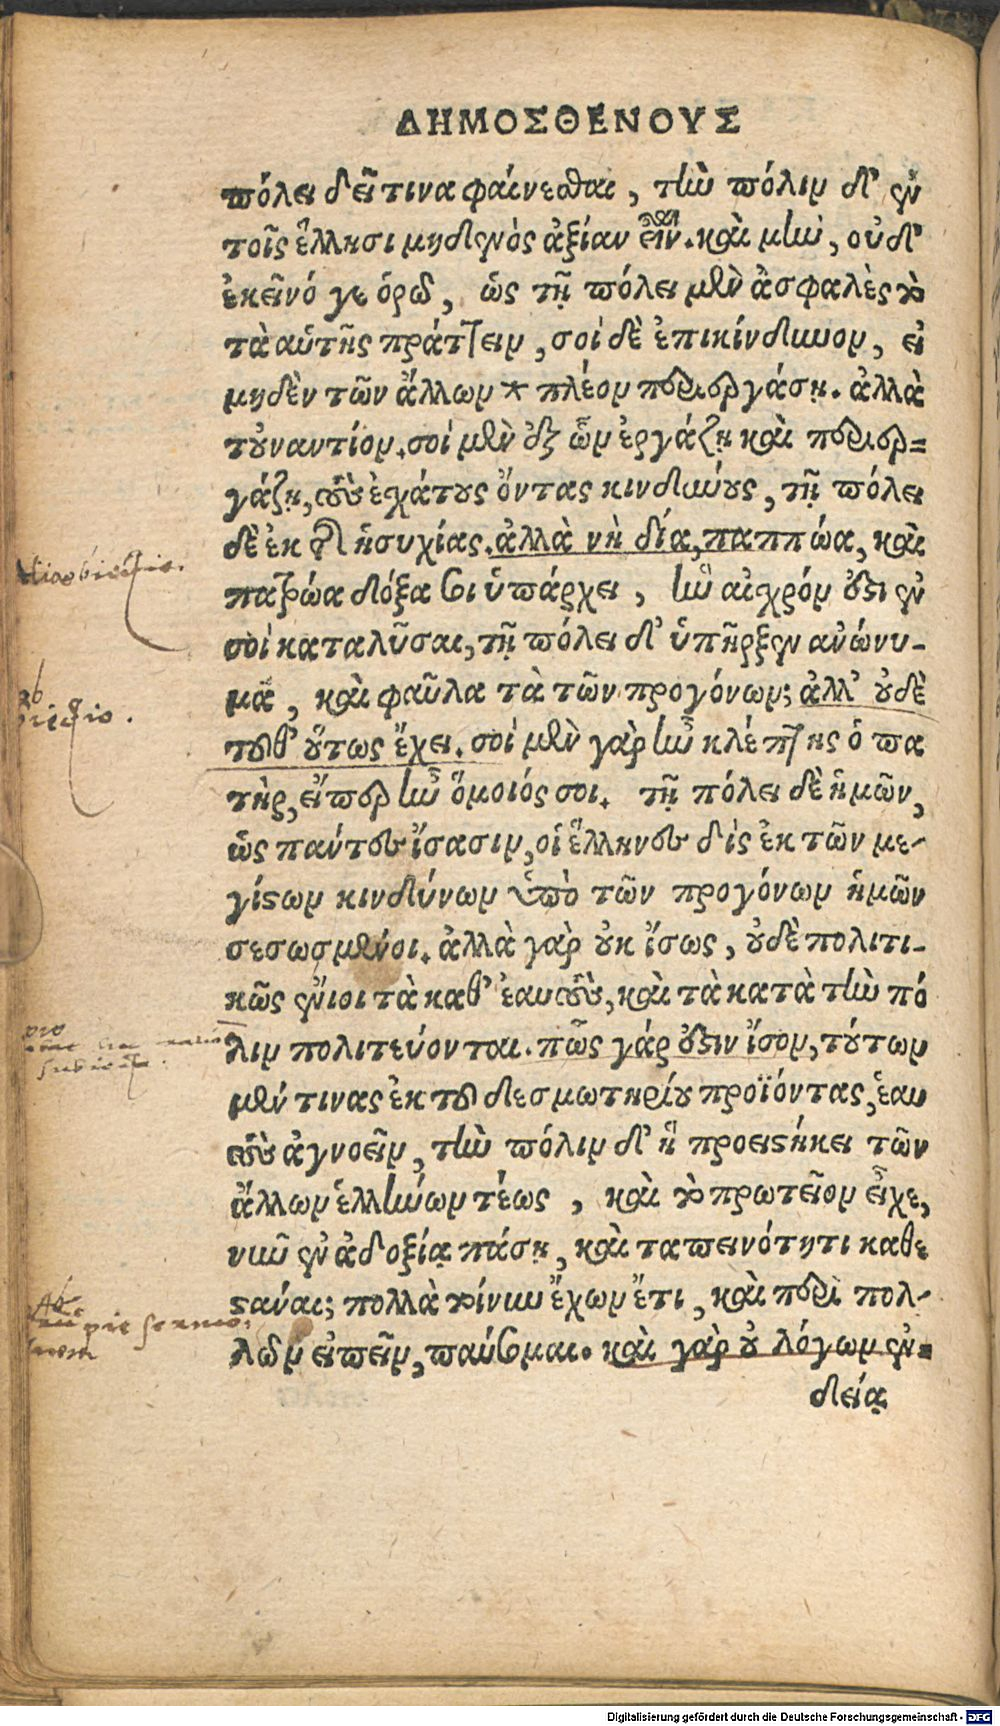 ΔΗΜΟΣΘΕΝΟΥΣ
πόλει δεῖ τινα φαίνεσθαι, τὴν πόλιν δ' ἐν
τοῖς ἕλλησι μηδενὸς ἀξίαν εἶναι. καὶ μὴν, οὐδ'
ἐκεῖνό γε ὁρῶ, ὡς τῇ πόλει μὲν ἀσφαλὲς τὸ
τὰ αὑτῆς πράττειν, σοὶ δὲ ἐπικίνδυνον, εἰ
μηδὲν τῶν ἄλλων * πλέον περιεργάσῃ. ἀλλὰ
τοὐναντίον. σοὶ μὲν ἐξ ὧν ἐργάζῃ καὶ περιερ=
γάζῃ, τοὺς ἐχάτους ὄντας κινδύνους, τῇ πόλει
δὲ ἐκ τῆς ἡσυχίας. ἀλλὰ νὴ δία, παππώα, καὶ
πατρώα δόξα σοι ὑπάρχει, ἣν αἰσχρόν ἐστιν ἐν
σοὶ καταλῦσαι, τῇ πόλει δ' ὑπῆρξεν ἀνώνυ-
μα, καὶ φαῦλα τὰ τῶν προγόνων; ἀλλ' οὐδὲ
τοῦθ' οὕτως ἔχει. σοὶ μὲν γὰρ ἦν κλέπτης ὁ πα
τὴρ, εἴπερ ἦν ὅμοιός σοι. τῇ πόλει δὲ ἡμῶν,
ὡς πάντες ἴσασιν, οἱ ἕλληνες δὶς ἐκ τῶν με-
γίστων κινδύνων ὑπὸ τῶν προγόνων ἡμῶν
σεσωσμένοι. ἀλλὰ γὰρ οὐκ ἴσως, οὐδὲ πολιτι-
κῶς ἔνιοι τὰ καθ' ἑαυτοὺς, καὶ τὰ κατὰ τὴν πό
λιν πολιτεύονται. πῶς γάρ ἐστιν ἴσον, τούτων
μέν τινας ἐκ τοῦ δεσμωτηρίου προϊόντας, ἑαυ
τοὺς ἀγνοεῖν, τὴν πόλιν δ' ἣ προειστήκει τῶν
ἄλλων ἑλλήνων τέως, καὶ τὸ πρωτεῖον εἶχε,
νῦν ἐν ἀδοξίᾳ πάσῃ, καὶ ταπεινότητι καθε
στάναι; πολλὰ τοίνυν ἔχων ἔτι, καὶ περὶ πολ-
λῶν εἰπεῖν, παύσομαι. καὶ γὰρ οὐ λόγων ἐν=
δείᾳ
Digitalisierung gefördert durch die Deutsche Forschungsgemeinschaft - DFG